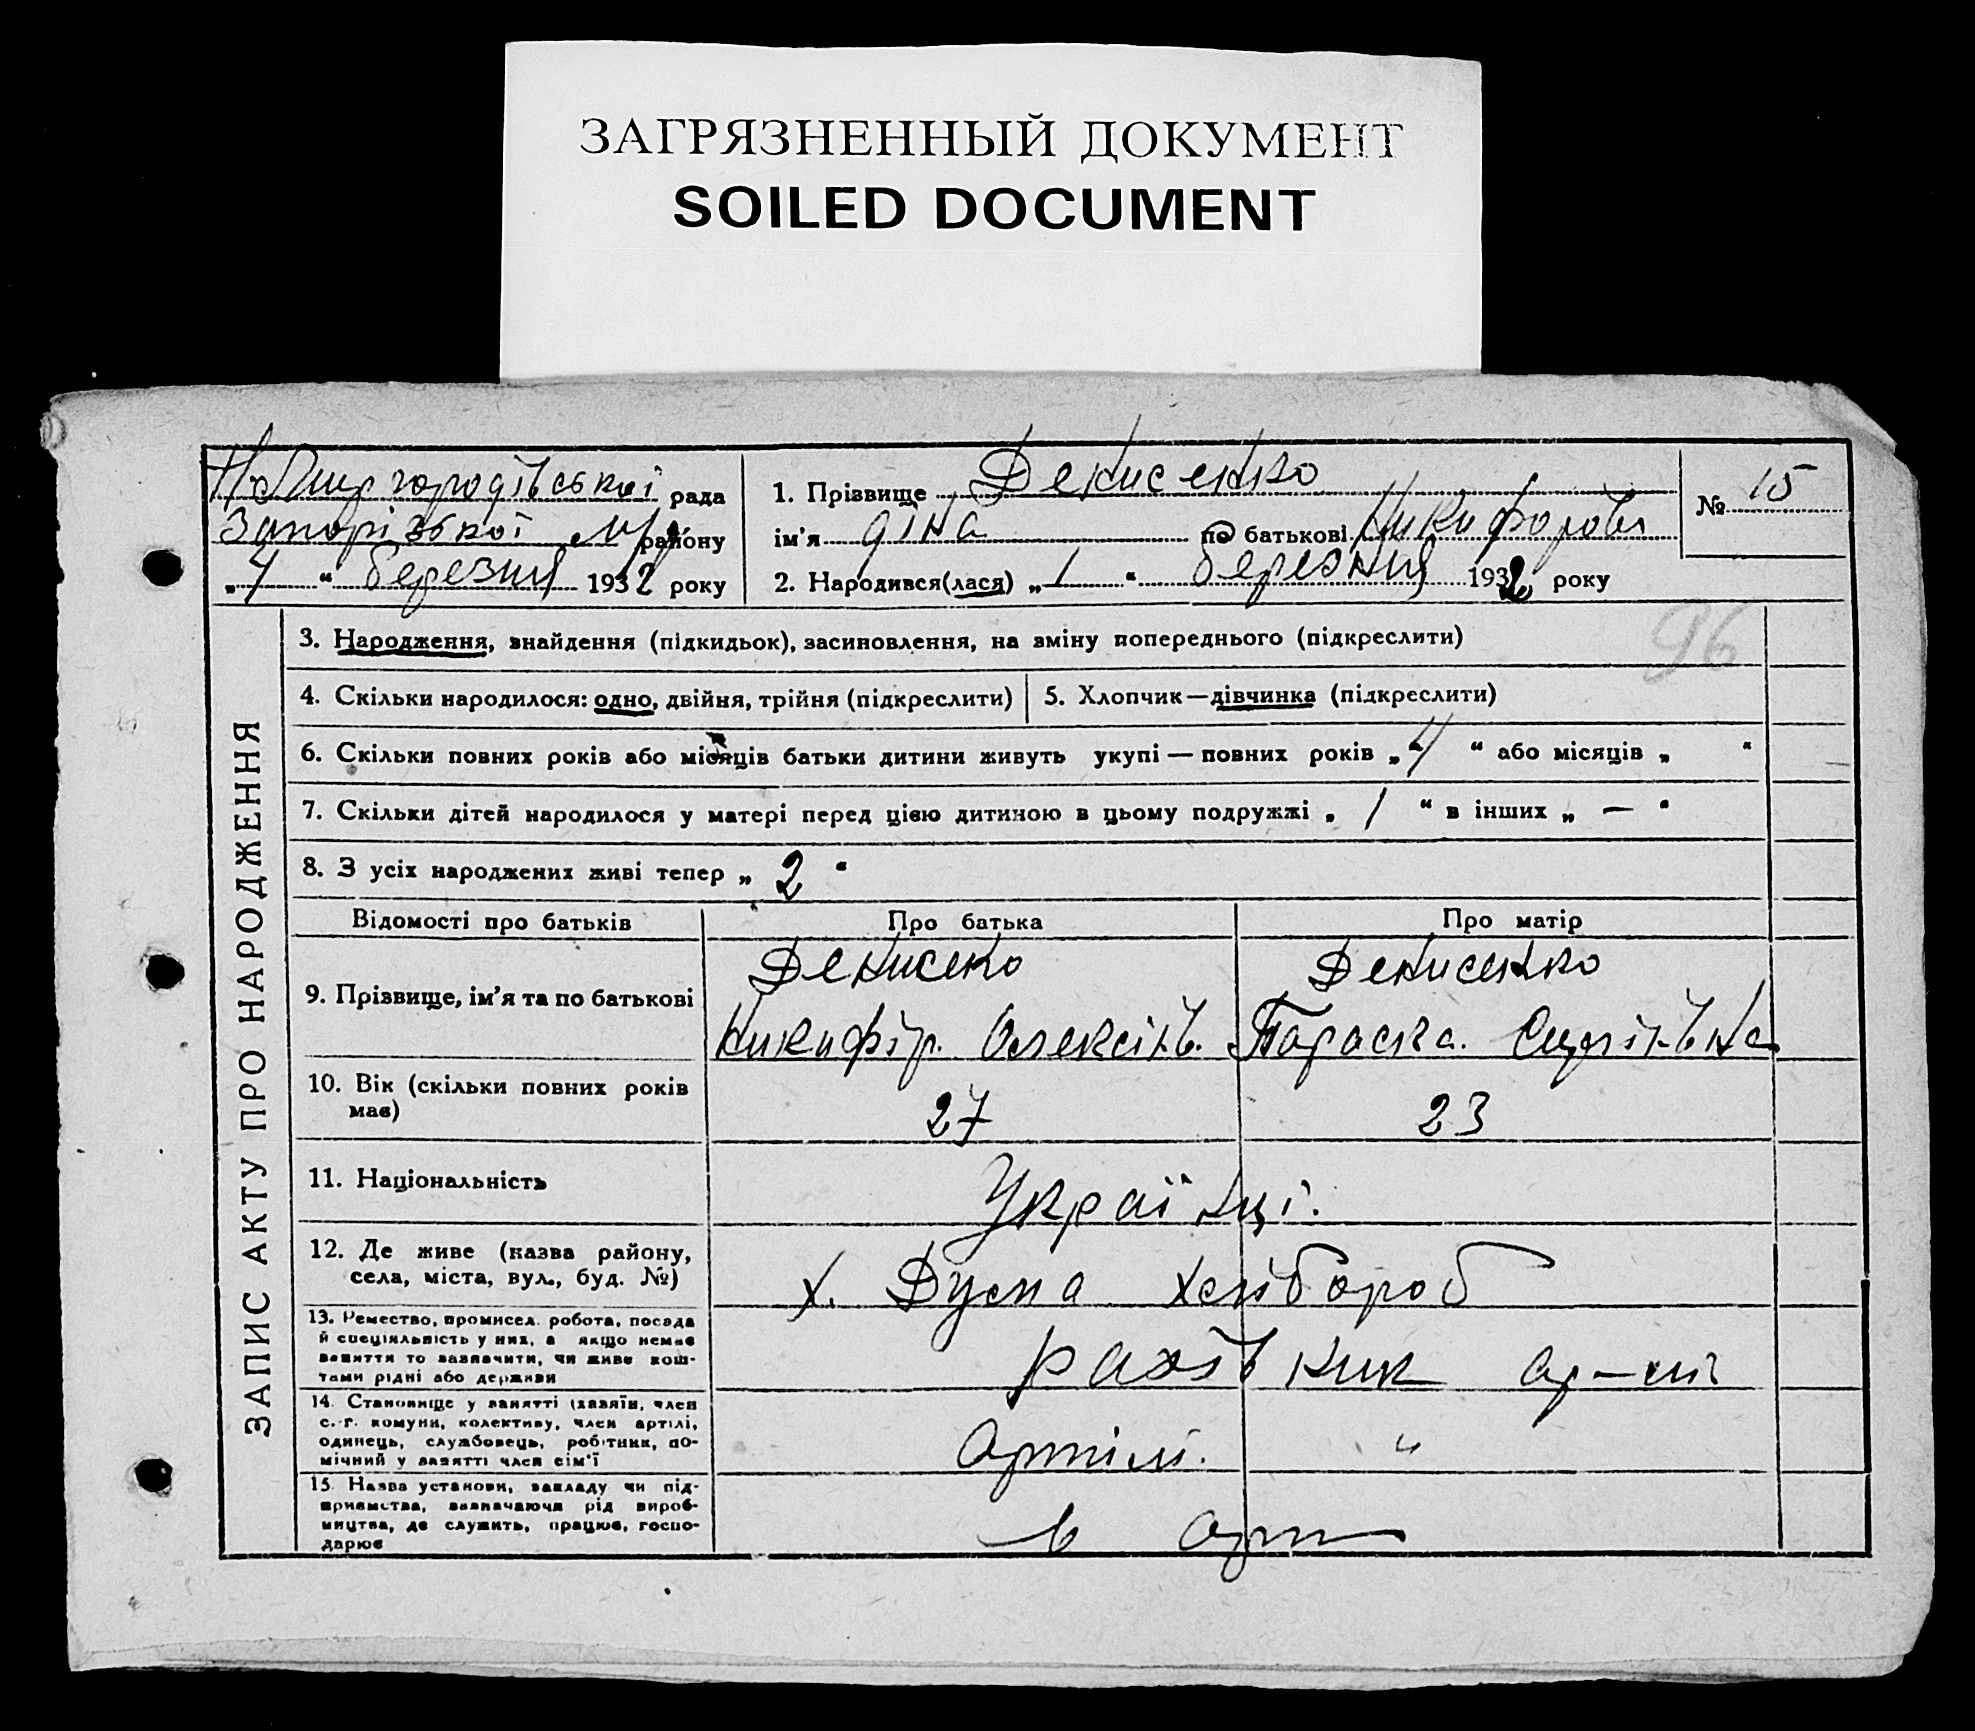 ЗАГРЯЗНЕННЫЙ ДОКУМЕНТ
SOILED DOCUMENT
рада
Запорізької району
„ 4 “ березня 1932 року
1. Прізвище Денисенко
ім’я Діна по батькові Никифоровн
2. Народився(лася) „ 1 “ березня 1932 року
№ 15
96
ЗАПИС АКТУ ПРО НАРОДЖЕННЯ
3. Народження, знайдення (підкидьок), засиновлення, на зміну попереднього (підкреслити)
4. Скільки народилося: одно, двійня, трійня (підкреслити)
5. Хлопчик—дівчинка (підкреслити)
6. Скільки повних років або місяців батьки дитини живуть укупі — повних років „ 4 “ або місяців „ “
7. Скільки дітей народилося у матері перед цією дитиною в цьому подружжі „ 1 “ в інших „ — “
8. З усіх народжених живі тепер „ 2 “
Відомості про батьків
Про батька
Про матір
9. Прізвище, ім’я та по батькові
Денисеко
Никифір. Олексійв.
Денисенко
Параска.
10. Вік (скільки повних років
має)
27
23
11. Національність
Українці.
12. Де живе (казва району,
села, міста, вул., буд. №)
х. хлібороб
13. Ремество, промисел. робота, посада
й спеціяльність у них, а якщо немає
заняття то зазначити, чи живе кош-
тами рідні або держави
рахівник
14. Становище у занятті (хазяїн, член
с.-г. комуни, колективу, член артілі,
одинець, службовець, робітник, по-
мічний у занятті член сім’ї
Артілі. “
15. Назва установи, закладу чи під-
приємства, зазначаючи рід вироб-
ництва, де служить, працює, госпо-
дарює
в арт